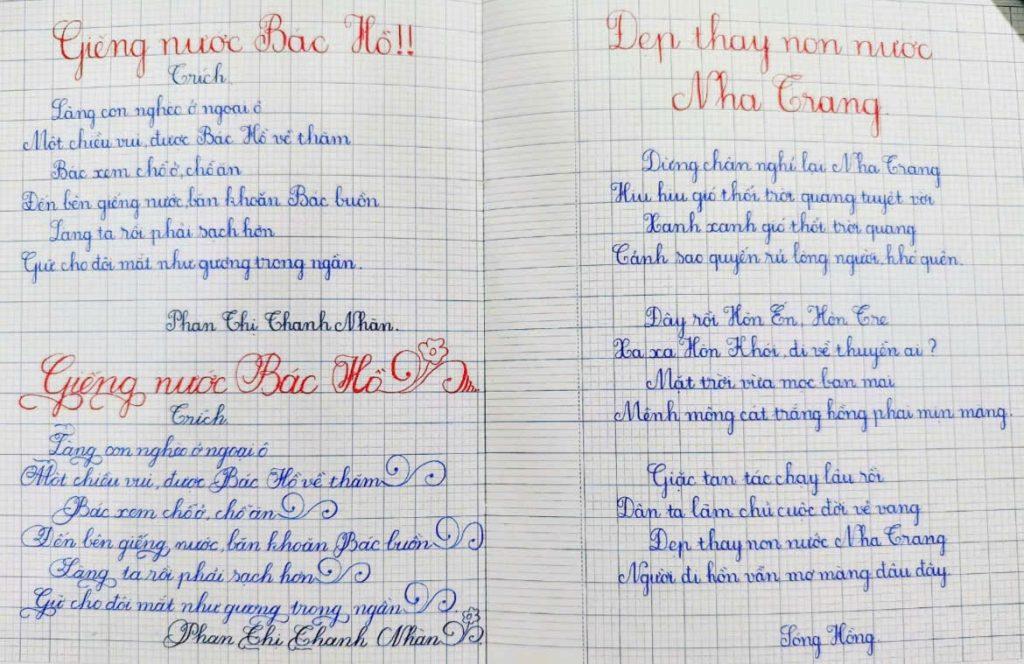 Giếng nước Bác Hồ!!
Trích
Làng con nghèo ở ngoại ô
Một chiều vui, được Bác Hồ về thăm
Bác xem chỗ ở, chỗ ăn
Đến bên giếng nước, băn khoăn Bác buồn
Làng ta rồi phải sạch hơn
Giữ cho đôi mắt như gương trong ngần.
Phan Thị Thanh Nhàn.
Giếng nước Bác Hồ
Trích
Làng con nghèo ở ngoại ô
Một chiều vui, được Bác Hồ về thăm
Bác xem chỗ ở, chỗ ăn
Đến bên giếng nước, băn khoăn Bác buồn
Làng ta rồi phải sạch hơn
Giữ cho đôi mắt như gương trong ngần
Phan Thị Thanh Nhàn
Đẹp thay non nước
Nha Trang
Dừng chân nghỉ lại Nha Trang
Hiu hiu gió thổi trời quang tuyệt vời
Xanh xanh gió thổi trời quang
Cảnh sao quyến rũ lòng người, khó quên.
Đây rồi Hòn Én, Hòn Tre
Xa xa Hòn Khói, đi về thuyền ai?
Mặt trời vừa mọc ban mai
Mênh mông cát trắng hồng phai mịn màng.
Giặc tan tác chạy lâu rồi
Dân ta làm chủ cuộc đời vẻ vang
Đẹp thay non nước Nha Trang
Người đi hồn vẫn mơ màng đâu đây
Sóng Hồng